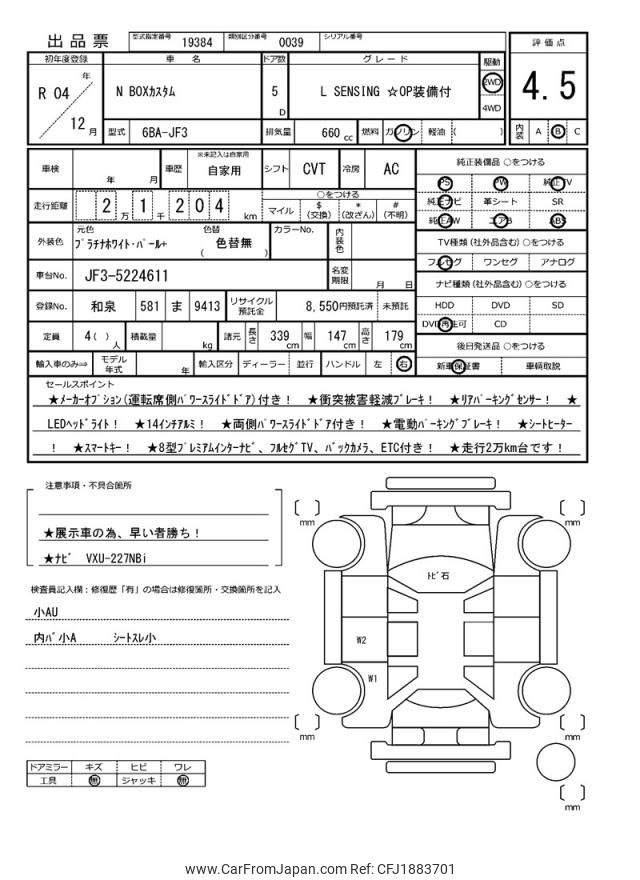 出品票 型式指定番号 19384 類別区分番号 0039 シリアル番号
評価点
初年度登録 車名 ドア数 グレード 駆動
R 04 年 12 月 N BOXｶｽﾀﾑ 5 D L SENSING ☆OP装備付 2WD 4WD
4.5
型式 6BA-JF3 排気量 660 cc 燃料 ガソリン 軽油 ( )
内装 A B C
車検 年 月 車歴 ※未記入は自家用 自家用 シフト CVT 冷房 AC
走行距離 2 万 1 千 2 0 4 km
○をつける
マイル $(交換) *(改ざん) #(不明)
外装色 元色 ﾌﾟﾗﾁﾅﾎﾜｲﾄ･ﾊﾟｰﾙ+ 色替 ( 色替無 ) カラーNo. 内装色
車台No. JF3-5224611 名変期限 月 日
登録No. 和泉 581 ま 9413 リサイクル預託金 8,550円預託済 未預託
定員 4( ) 人 積載量 kg 諸元 長さ 339 cm 幅 147 cm 高さ 179 cm
輸入車のみ⇒ モデル年式 年 輸入区分 ディーラー 並行 ハンドル 左 右
純正装備品 ○をつける
PS PW 純正TV
純正ナビ 革シート SR
純正AW エアB ABS
TV種類 (社外品含む) ○をつける
フルセグ ワンセグ アナログ
ナビ種類 (社外品含む) ○をつける
HDD DVD SD
DVD再生可 CD
後日発送品 ○をつける
新車保証書 車輌取説
セールスポイント
★ﾒｰｶｰｵﾌﾟｼｮﾝ(運転席側ﾊﾟﾜｰｽﾗｲﾄﾞﾄﾞｱ)付き！ ★衝突被害軽減ﾌﾞﾚｰｷ！ ★ﾘｱﾊﾟｰｷﾝｸﾞｾﾝｻｰ！ ★
LEDﾍｯﾄﾞﾗｲﾄ！ ★14ｲﾝﾁｱﾙﾐ！ ★両側ﾊﾟﾜｰｽﾗｲﾄﾞﾄﾞｱ付き！ ★電動ﾊﾟｰｷﾝｸﾞﾌﾞﾚｰｷ！ ★ｼｰﾄﾋｰﾀｰ
！ ★ｽﾏｰﾄｷｰ！ ★8型ﾌﾟﾚﾐｱﾑｲﾝﾀｰﾅﾋﾞ、ﾌﾙｾｸﾞTV、ﾊﾞｯｸｶﾒﾗ、ETC付き！ ★走行2万km台です！
注意事項・不具合箇所
★展示車の為、早い者勝ち！
★ﾅﾋﾞ VXU-227NBi
検査員記入欄：修復歴「有」の場合は修復箇所・交換箇所を記入
小AU
内ﾊﾞ小A ｼｰﾄｽﾚ小
ドアミラー キズ ヒビ ワレ
工具 無 ジャッキ 無
mm
mm
ﾄﾋﾞ石
W2
W1
mm
mm
mm
www.CarFromJapan.com Ref: CFJ1883701